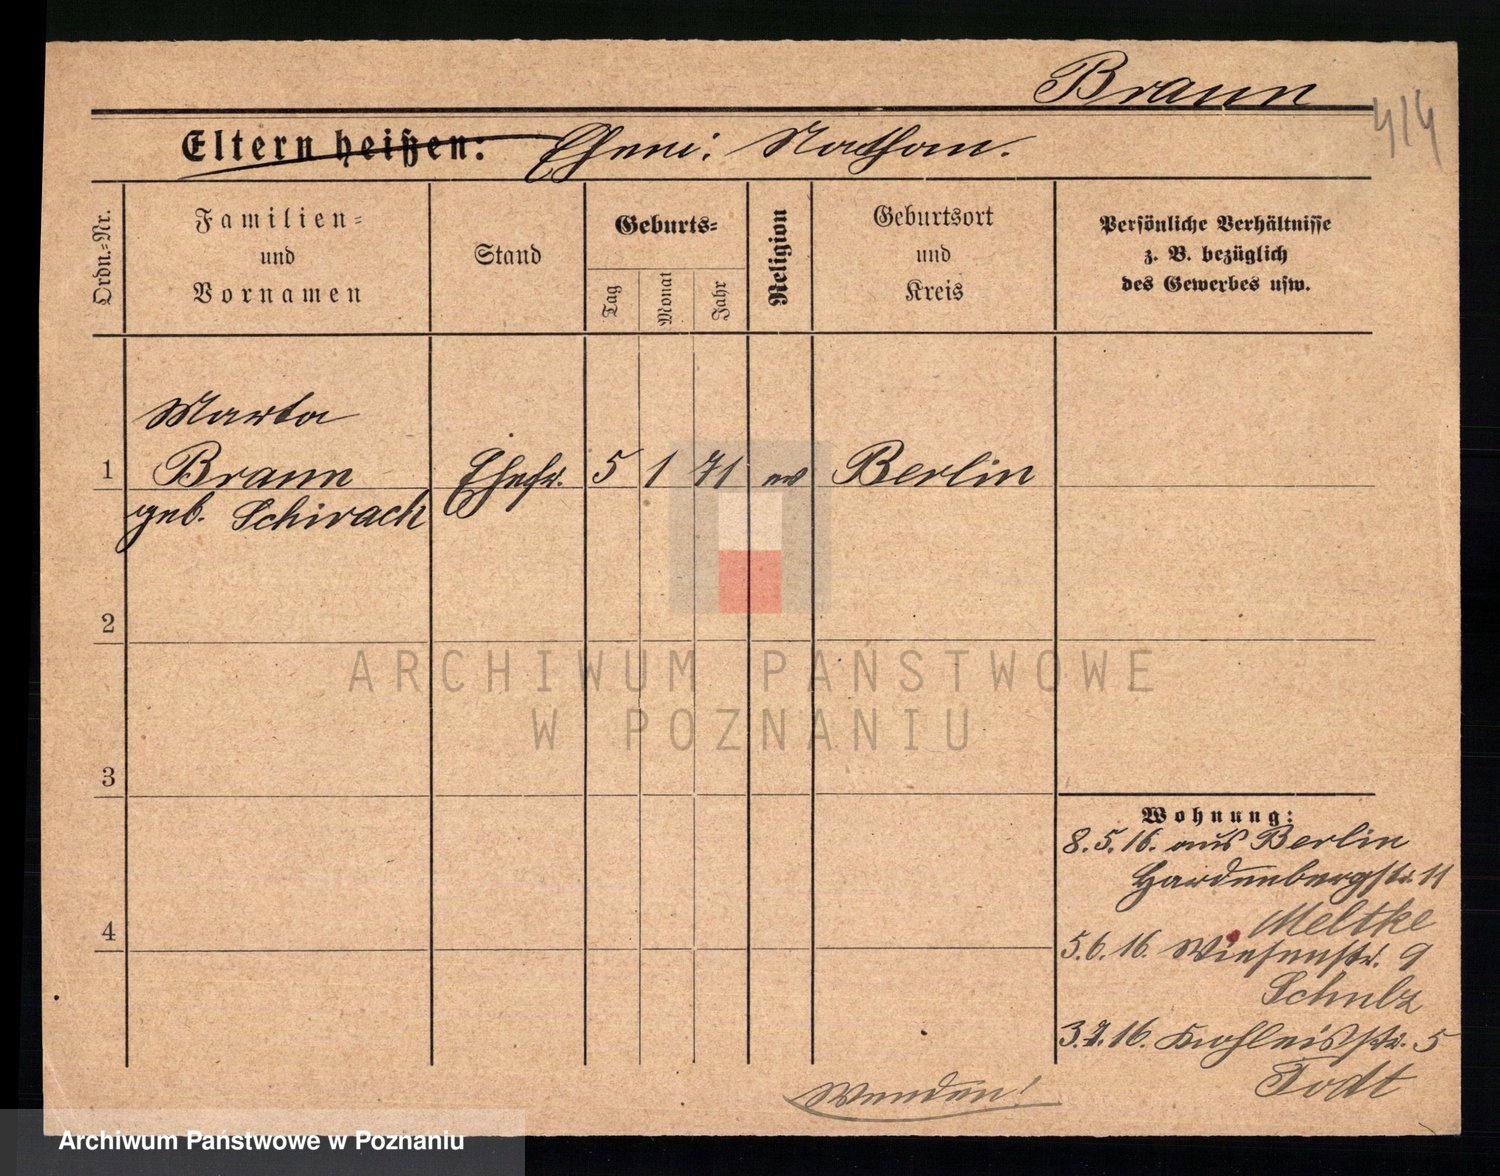 Braun
414
Eltern heißen: Ehem: Nathan.
Ordn.-Nr.
Familien-
und
Vornamen
Stand
Geburts-
Tag
Monat
Jahr
Religion
Geburtsort
und
Kreis
Persönliche Verhältnisse
z. B. bezüglich
des Gewerbes usw.
Marta
1 Braun Ehefr. 5 1 71 ev Berlin
geb. Schirach
2
3
4
ARCHIWUM PAŃSTWOWE
W POZNANIU
Wohnung:
8.5.16. aus Berlin
Hardenbergstr. 11
Meltke
5.6.16. Wiesenstr. 9
Schulz
3.7.16. Kohleisstr. 5
Todt
Wenden!
Archiwum Państwowe w Poznaniu